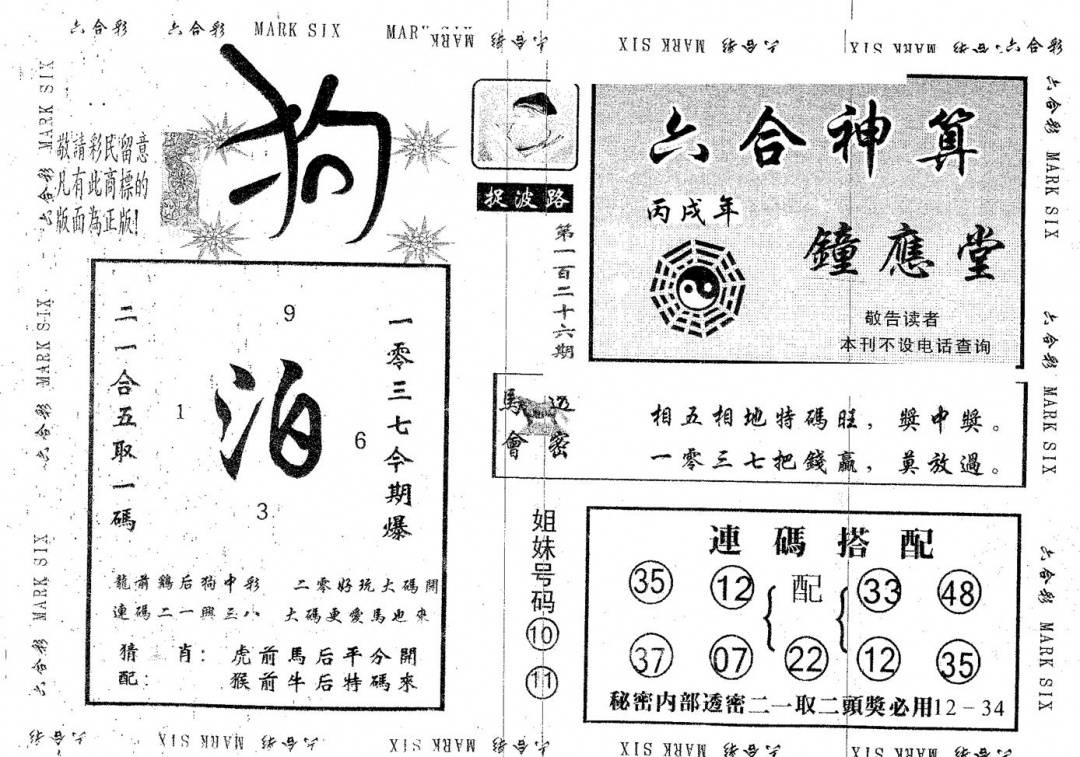 六合彩 六合彩 MARK SIX MARK SIX 六合彩 MARK SIX 六合彩 MARK SIX 六合彩 六合彩
六合彩 MARK SIX 六合彩 MARK SIX 六合彩 MARK SIX
敬請彩民留意
凡有此商標的
版面為正版!
狗
捉波路
第一百二十六期
六合神算
丙戌年
鐘應堂
敬告读者
本刊不设电话查询
二一合五取一碼
9
1
泊
6
3
一零三七今期爆
龍前鷄后狗中彩 二零好玩大碼開
連碼二一興三八 大碼更愛馬也來
猜 肖: 虎前馬后平分開
配: 猴前牛后特碼來
馬會
透密
相五相地特碼旺，獎中獎。
一零三七把錢贏，莫放過。
姐妹号码
10
11
連碼搭配
35 12 配 33 48
37 07 22 12 35
秘密内部透密二一取二頭獎必用12-34
六合彩 MARK SIX 六合彩 MARK SIX 六合彩 MARK SIX
六合彩 MARK SIX 六合彩 MARK SIX 六合彩 MARK SIX 六合彩 MARK SIX 六合彩